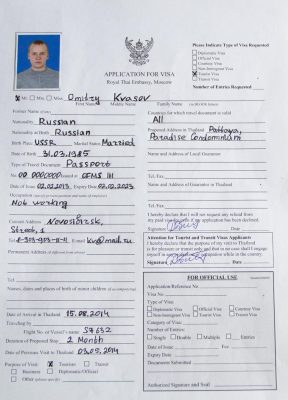 Please Indicate Type of Visa Requested
Diplomatic Visa
Official Visa
Courtesy Visa
Non-Immigrant Visa
Tourist Visa
Transit Visa
Number of Entries Requested
APPLICATION FOR VISA
Royal Thai Embassy, Moscow
Mr. Mrs. Miss Dmitry Kvasov
First Name Middle Name Family Name (in BLOCK letters)
Former Name (if any)
Nationality Russian
Nationality at Birth Russian
Birth Place USSR Marital Status Married
Date of Birth 31.03.1985
Type of Travel Document Passport
No. 00 0000000 Issued at OFMS 111
Date of Issue 02.02.2013 Expiry Date 02.02.2023
Occupation
Not working
Current Address Novosibirsk,
Street, 1
Tel. 8-303-903-11-11 E-mail kv@mail.ru
Permanent Address (if different from above)
Tel.
Names, dates and places of birth of minor children (if accompanying)
Date of Arrival in Thailand 15.08.2014
Traveling by
Flight No. or Vessel's name S7632
Duration of Proposed Stay 2 Month
Date of Previous Visit to Thailand 03.02.2014
Purpose of Visit: Tourism Transit
Business Diplomatic/Official
Other (please specify)
Countries for which travel document is valid
All
Proposed Address in Thailand Pattaya,
Paradise Condominium
Name and Address of Local Guarantor
Tel./Fax
Name and Address of Guarantor in Thailand
Tel./Fax
I hereby declare that I will not request any refund from
my paid visa fee even if my application has been declined.
Signature Date
Attention for Tourist and Transit Visas Applicants
I hereby declare that the purpose of my visit to Thailand
is for pleasure or transit only and that in no case shall I engage
myself in any profession or occupation while in the country.
Signature Date
FOR OFFICIAL USE
Application/Reference No.
Visa No.
Type of Visa:
Diplomatic Visa Official Visa Courtesy Visa
Non-Immigrant Visa Tourist Visa Transit Visa
Category of Visa:
Number of Entries:
Single Double Multiple Entries
Date of Issue Fee
Expiry Date
Documents Submitted
Authorized Signature and Seal